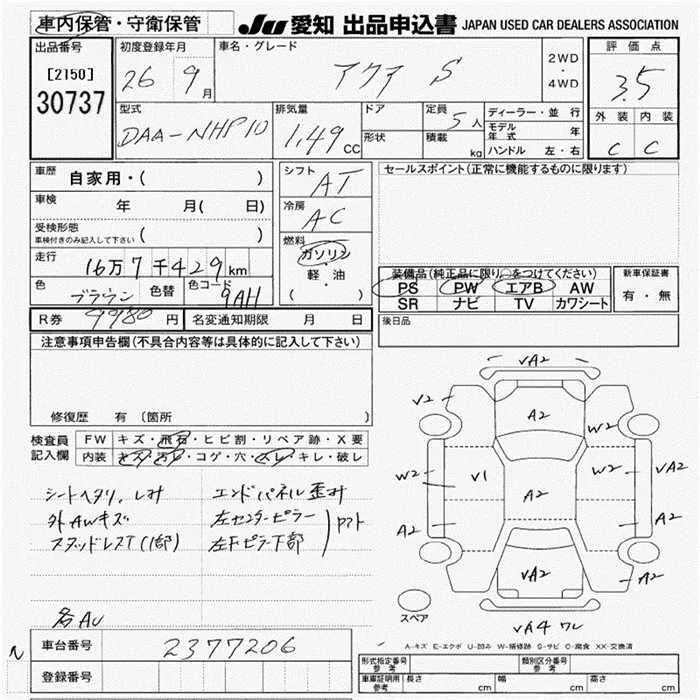 車内保管・守衛保管
JU 愛知 出品申込書 JAPAN USED CAR DEALERS ASSOCIATION
出品番号
[2150]
30737
初度登録年月
26 9月
車名・グレード
アクア S
2WD
・
4WD
評価点
3.5
型式
DAA-NHP10
排気量
1.49 CC
ドア
形状
定員
5人
積載
kg
ディーラー・並行
モデル年式 年
ハンドル 左・右
外装 内装
C C
車歴
自家用・( )
車検
年 月( 日)
受検形態
車検付きのみ記入して下さい
( )
走行
16万7千429km
色
ブラウン
色替
色コード
9AH
R券
9980円
名変通知期限 月 日
シフト
AT
冷房
AC
燃料
ガソリン
・
軽・油
( )
セールスポイント(正常に機能するものに限ります)
装備品(純正品に限り○をつけてください)
PS PW エアB AW
SR ナビ TV カワシート
新車保証書
有・無
後日品
注意事項申告欄(不具合内容等は具体的に記入して下さい)
修復歴 有(箇所 )
検査員
記入欄
FW キズ・飛石・ヒビ割・リペア跡・X要
内装 キズ・汚レ・コゲ・穴・スレ・キレ・破レ
シートヘタリ、しみ
外AWキズ
スタッドレスT(1部)
エンドパネル歪み
左センターピラー
左Fピラー下部
各AU
N
VA2
V2
A2
W2
W2
V1
W2
VA2
A2
A2
A2
VA2
A2
スペア
VA4 ワレ
A-キズ E-エクボ U-凹み W-補修跡 S-サビ C-腐食 XX-交換済
車台番号
2377206
登録番号
形式指定番号
参考
類別区分番号
参考
車庫証明用
参考
長さ cm
幅 cm
高さ cm